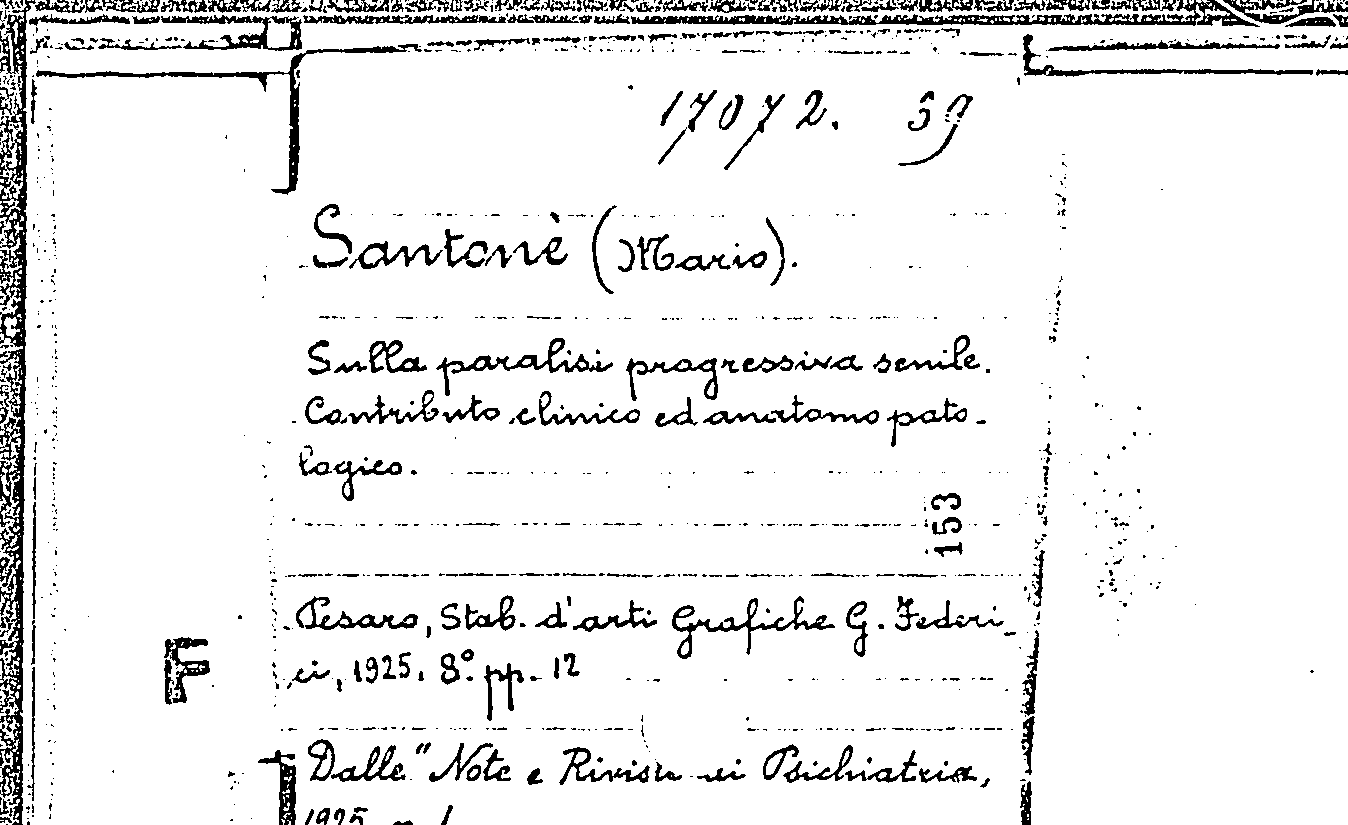 17072. 59
Santonè (Mario).
Sulla paralisi progressiva senile.
Contributo clinico ed anatomo pato-
logico.
153
Pesaro, Stab. d'arti Grafiche G. Federi-
ci, 1925. 8º pp. 12
F
Dalle "Note e Riviste di Psichiatria,
1925. n. 1